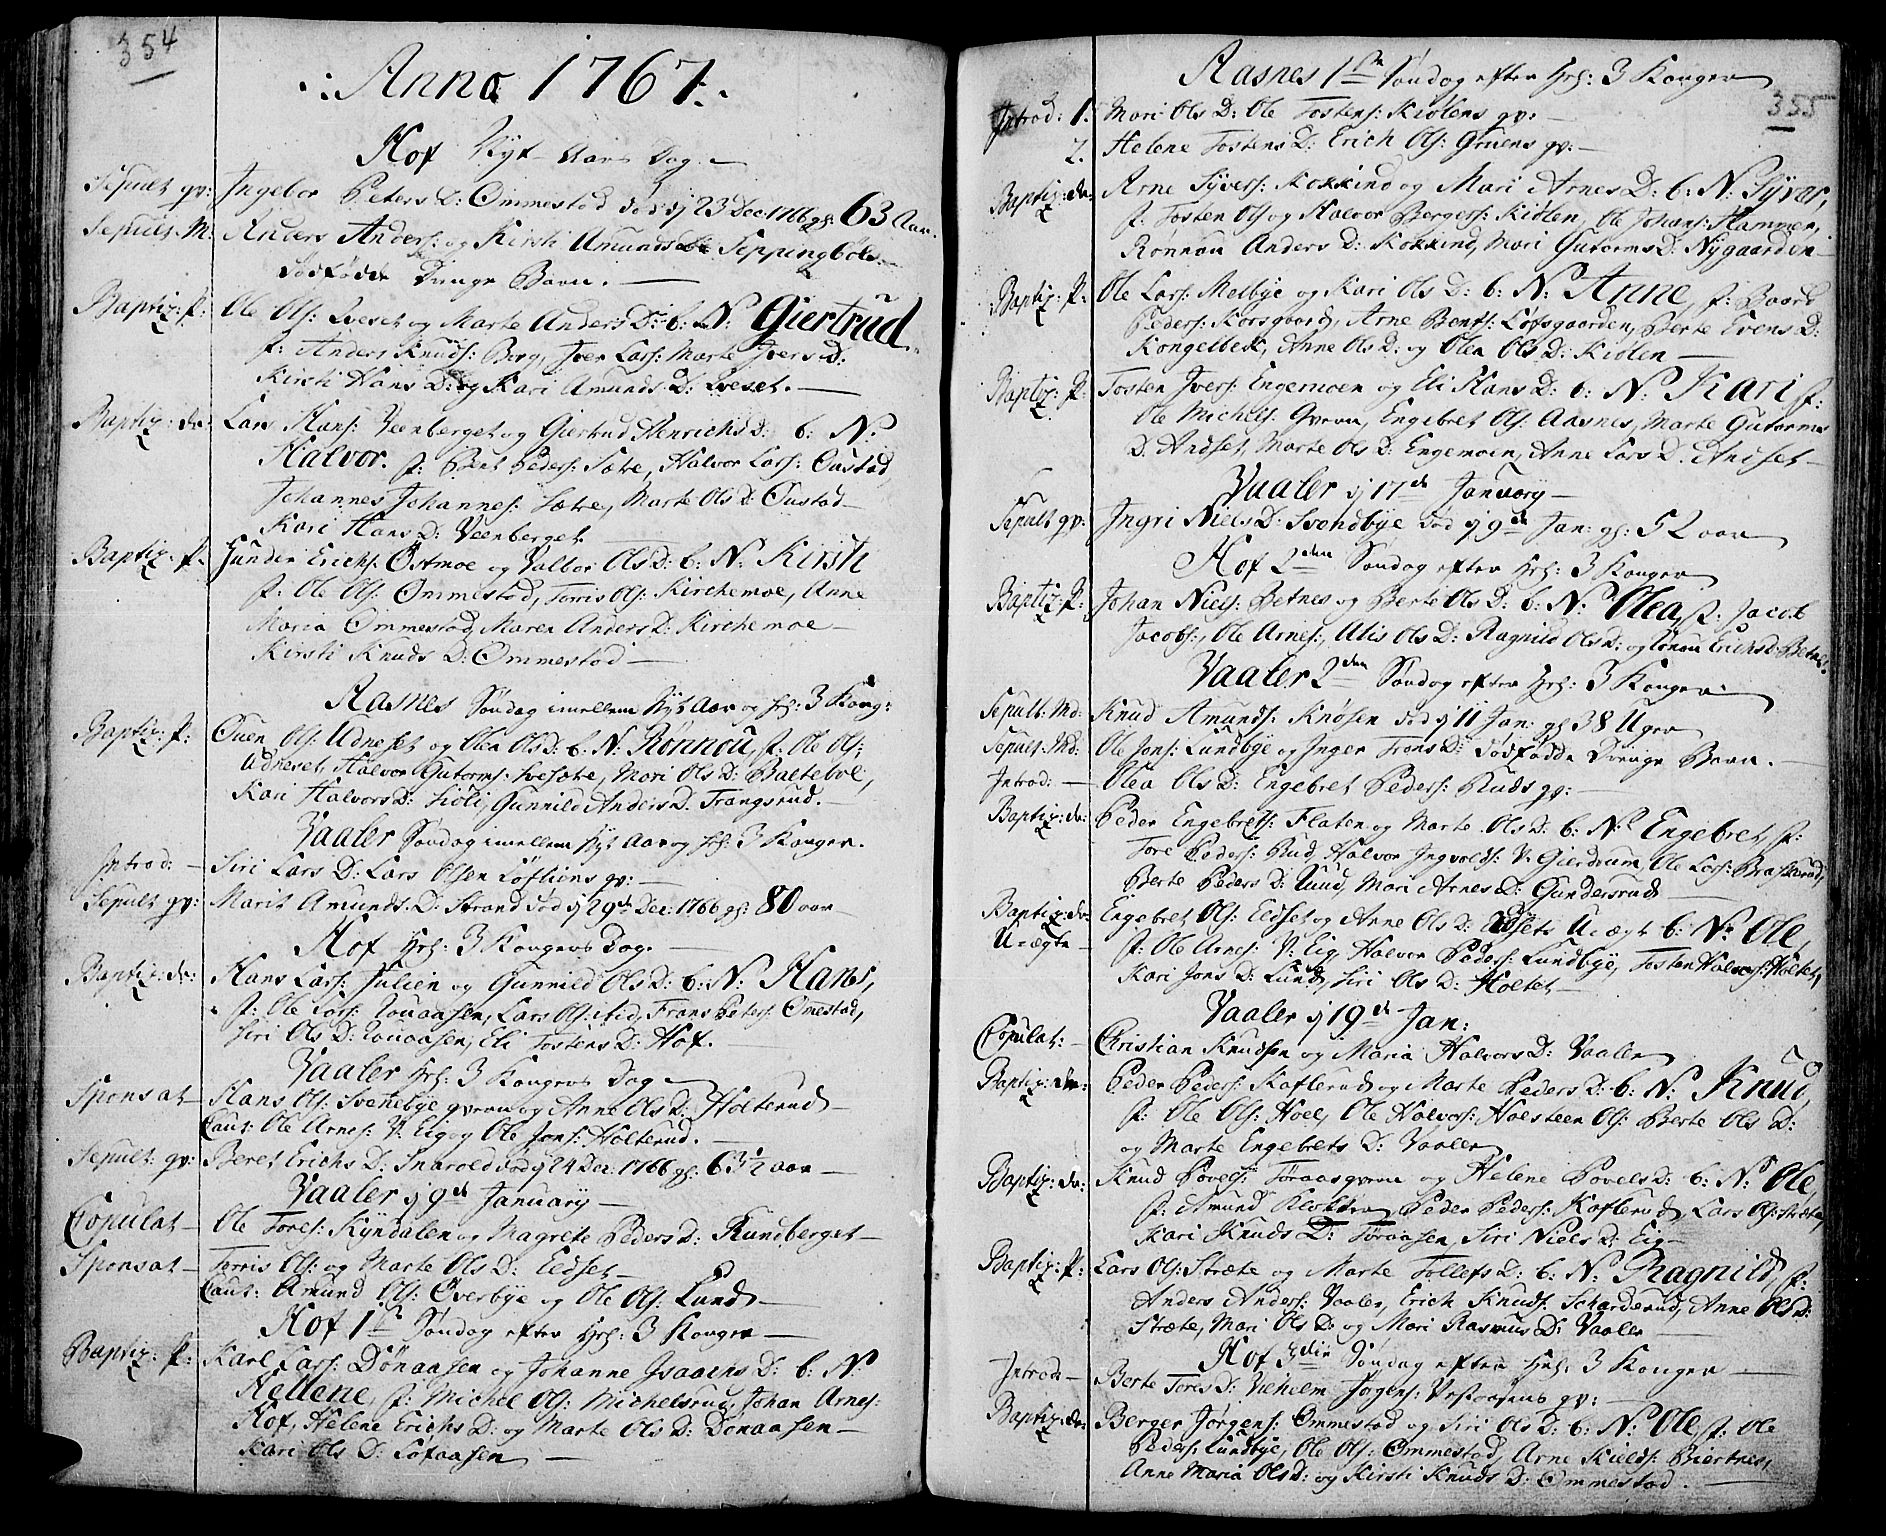 354
Anno 1767.
Hof Nyt Aars Dag.
Sepult qv: Ingebor Peters D: Ommestad død 23 Dec: 1766 gl: 63 Aar.
Sepult: M. Anders Anders: og Kirsti Amunds Seppingböls
dødfødde Drenge Barn.
Baptiz: P: Ole Ols: Sveset og Marte Anders D: b: N: Giertrud
f: Anders Knuds: Berg, Iver Lars: Marte Ivers D:
Kirsti Hans D: og Kari Amunds D: Sveset.
Baptiz: dr: Lars Hans: Veenberget og Giertrud Henrichs D: b: N:
Halvor. f: Bent Peders: Sætre, Halvor Lars: Oustad,
Johannes Johannes: Sætre, Marte Ols D: Oustad
Kari Hans D: Veenberget
Baptiz: P: Gunder Erichs: Östmoe og Valbor Ols D: b: N: Kirsti
f: Ole Ols: Ommestad, Torris Ols: Kirchemoe, Anne
Maria Ommestad, Maren Anders D: Kirchemoe
Kirsti Knuds D: Ommestad
Aasnes Søndag imellem Nyt Aar og Hel: 3 Kong:
Baptiz: P: Ouen Ols: Udneset og Olea Ols D: b: N: Rönnou, f: Ole Ols:
Udneset, Halvor Gutorms: Svesætre, Mari Ols D: Baltebøl,
Kari Halvors D: Siöli, Gunnild Anders D: Trangsrud.
Vaaler Søndag imellem Nyt Aar og Hel: 3 Konger.
Introd: Siri Lars D: Lars Olsen Löftiens qv:
Sepult qv: Marit Amunds D: Strand død 29de Dec: 1766 gl: 80 aar
Hof Hel: 3 Kongers Dag.
Baptiz: dr: Hans Lars: Julien og Gunnild Ols D: b: N: Hans,
f: Ole Lars: Louaasen, Lars Ols: ibid, Frans Peters: Omestad,
Siri Ols D: Louaasen, Eli Tostens D: Hof.
Vaaler Hel: 3 Kongers Dag
Sponsat Hans Ols: Svenebye qvern og Anne Ols D: Holterud
Caut: Ole Arnes: V. Eig og Ole Jons: Holterud.
Sepult: qv: Beret Erichs D: Snarold død 24 Dec: 1766 gl: 63 1/2 aar
Vaaler 9de January
Copulat Ole Tores: Kyndalen og Magrete Peders D: Rundberget
Sponsat Torris Ols: og Marte Ols D: Eidset
Caut: Amund Ols: Överbye og Ole Ols: Lund
Hof 1ste Søndag efter Hel: 3 Konger
Baptiz: P: Karl Lars: Dönaasen og Johanne Isaaens D: b: N:
Hellene, f: Michel Ols: Michelsrud, Johan Arnes:
Hof, Helene Erichs D: og Marte Ols D: Donaasen
Kari Ols D: Löfaasen
355
Aasnes 1ste Søndag efter Hel: 3 Konger
Introd: 1. Mari Ols D: Ole Tostens: Kiølens qv:
2. Helene Tostens D: Erich Ols: Gruens qv:
Baptiz: dr: Arne Syvers: Kokkind og Mari Arnes D: b: N: Syver,
f: Tosten Ols: og Halvor Bergers: Kiølen, Ole Johans: Hammer,
Rønnou Anders D: Kokkind, Mari Gutorms D: Nygaarden
Baptiz: P: Ole Lars: Melbye og Kari Ols D: b: N: Anne, f: Baard
Peders: Korsgaard, Arne Bents: Löfsgaarden, Berte Evens D:
Kongelbek, Anne Ols D: og Olea Ols D: Kiølen
Baptiz: P: Tosten Ivers: Engemoen og Eli Hans D: b: N: Kari f:
Ole Michels: Qvern, Engebret Ols: Aasnes, Marte Gutorms
D: Andset, Marte Ols D: Engemoen, Anne Lars D: Andset
Vaaler 17de January
Sepult qv: Ingri Niels D: Svendbye død 9de Jan: gl: 52 aar
Hof 2den Søndag efter Hel: 3 Konger
Baptiz: P: Johan Niels: Betnes og Berte Ols D: b: N: Olea, f: Jacob
Jacobs:, Ole Arnes:, Alis Ols D: Ragnild Ols D: og Lönau Erichs D: Betnes.
Vaaler 2den Søndag efter Hel: 3 Konger
Sepult: Md: Knud Amunds: Knøsen død 11 Jan: gl: 38 Uger
Sepult: Md: Ole Jons: Lundbye og Inger Frans D: dødfødde Drenge Barn.
Introd: Olea Ols D: Engebret Peders: Ruds qv:
Baptiz: dr: Peder Engebrets: Flaten og Marte Ols D: b: N: Engebret, f:
Tore Peders: Rud, Halvor Ingvolds: V. Gierdrum, Ole Lars: Braskerud,
Berte Peders D: Ruud, Mari Arnes D: Gundersrud
Baptiz: dr: Engebret Ols: Eidset og Anne Ols D: Eidsets Uægt b: N: Ole,
Uægte f: Ole Arnes: V. Eig, Halvor Peders: Lundbye, Tosten Halvors: Holtet,
Kari Jons D: Lund, Siri Ols D: Holtet
Vaaler 19de Jan:
Copulat: Christian Knudsen og Maria Halvors D: Vaaler
Baptiz: dr: Peder Peders: Kaflerud og Marte Peders D: b: N: Knud,
f: Ole Ols: Hoel, Ole Halvors: Holsteen Ols: Berte Ols D:
og Marte Engebrets D: Vaaler
Baptiz: dr: Knud Povels: Töraasqvern og Helene Povels D: b: N: Ole,
f: Amund Klokker, Peder Peders: Kaflerud, Lars Ols: Stræte,
Kari Knuds D: Töraasen, Siri Niels D: Eig
Baptiz: P: Lars Ols: Stræte og Marte Tollefs D: b: N: Ragnild, f:
Anders Anders: Vaaler, Erich Knuds: Scharderud, Anne Ols D:
Stræte, Mari Ols D: og Mari Rasmus D: Vaaler
Hof 3die Søndag efter Hel: 3 Konger
Introd: Berte Toris D: Vilhelm Jørgens: Vesaasens qv:
Baptiz: dr: Berger Jørgens: Ommestad og Siri Ols D: b: N: Ole f: Ole
Peders: Lundbye, Ole Ols: Ommestad, Arne Kields: Biertnes,
Anne Maria Ols D: og Kirsti Knuds D: Ommestad.